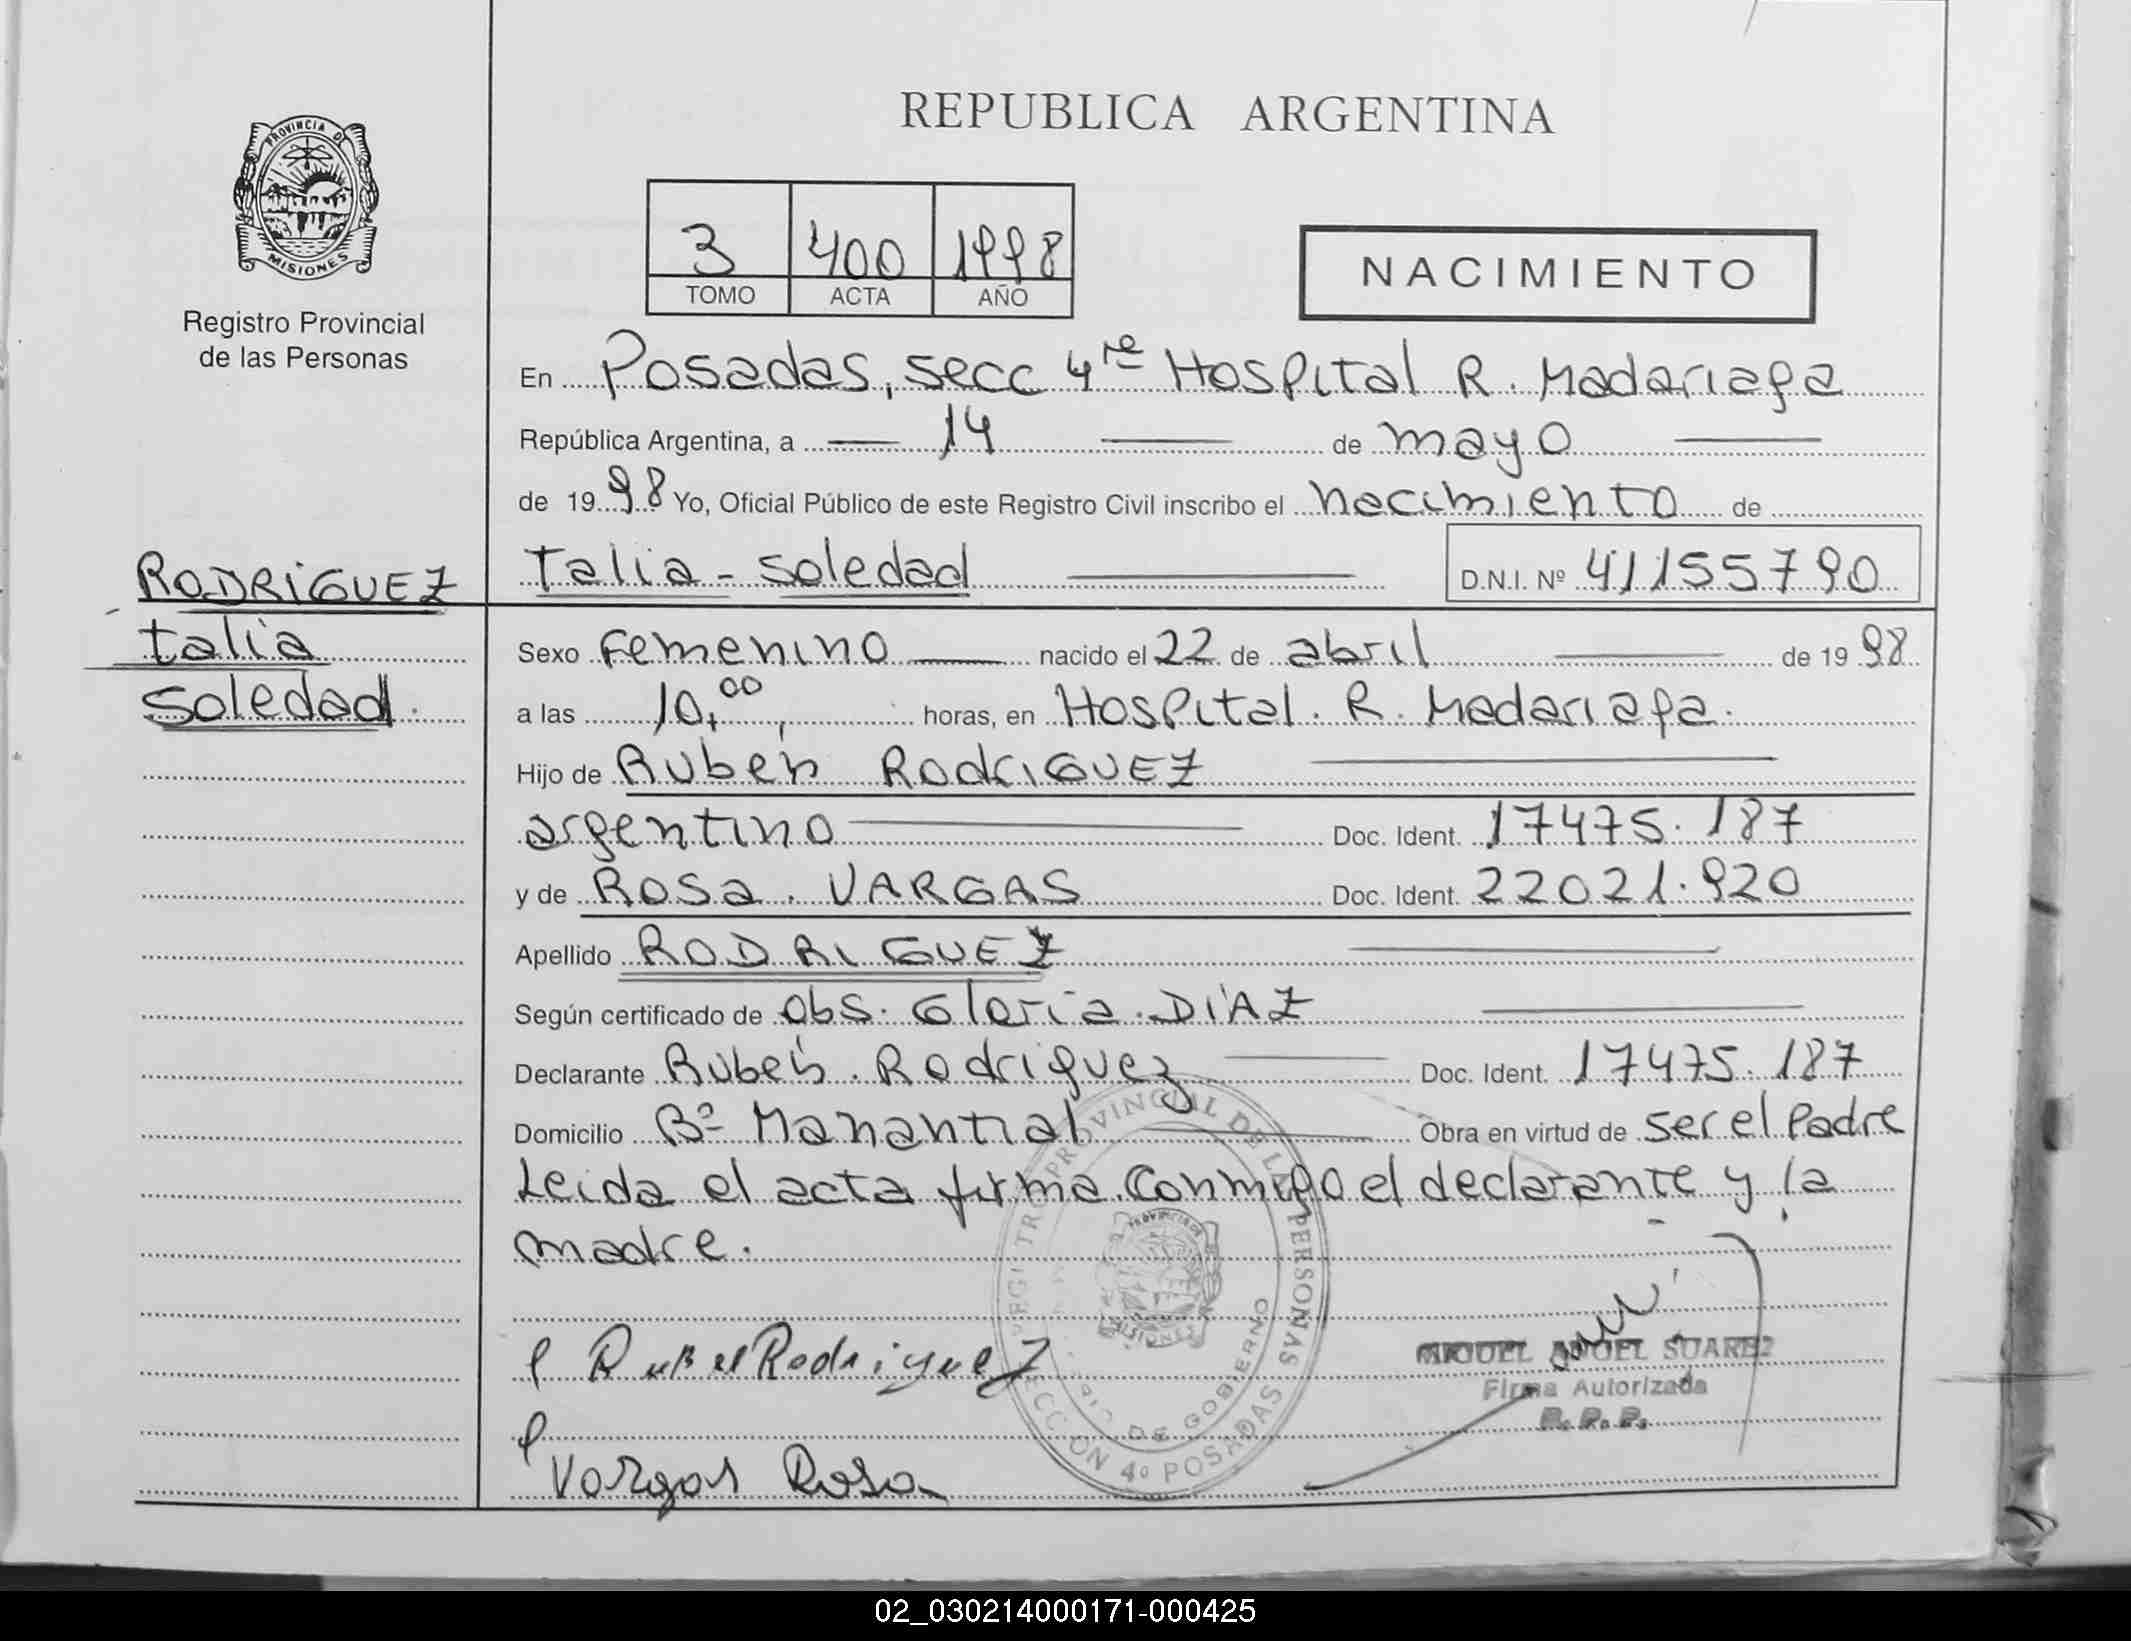 REPUBLICA ARGENTINA
PROVINCIA DE
MISIONES
Registro Provincial
de las Personas
3 400 1998
TOMO ACTA AÑO
NACIMIENTO
En Posadas, secc 4ta Hospital R. Madariaga
República Argentina, a 14 de mayo
de 1998 Yo, Oficial Público de este Registro Civil inscribo el nacimiento de
Talia - Soledad D.N.I. Nº 41155790
RODRIGUEZ
talia
Soledad.
Sexo Femenino nacido el 22 de abril de 1998
a las 10,00 horas, en Hospital. R. Madariaga.
Hijo de Ruben RodriGUEZ
argentino Doc. Ident. 17475.187
y de Rosa. VARGAS Doc. Ident. 22021.920
Apellido RODRIGUEZ
Según certificado de Obs. Gloria. DIAZ
Declarante Ruben. Rodriguez Doc. Ident. 17475.187
Domicilio Bº Manantial Obra en virtud de ser el Padre
Leida el acta firma conmigo el declarante y la
madre.
Rodriguez
MIGUEL ANGEL SUAREZ
Firma Autorizada
R. P. P.
Vargas Rosa
REGISTRO PROVINCIAL DE LAS PERSONAS
SECCION 4º POSADAS
DE GOBIERNO
02_030214000171-000425